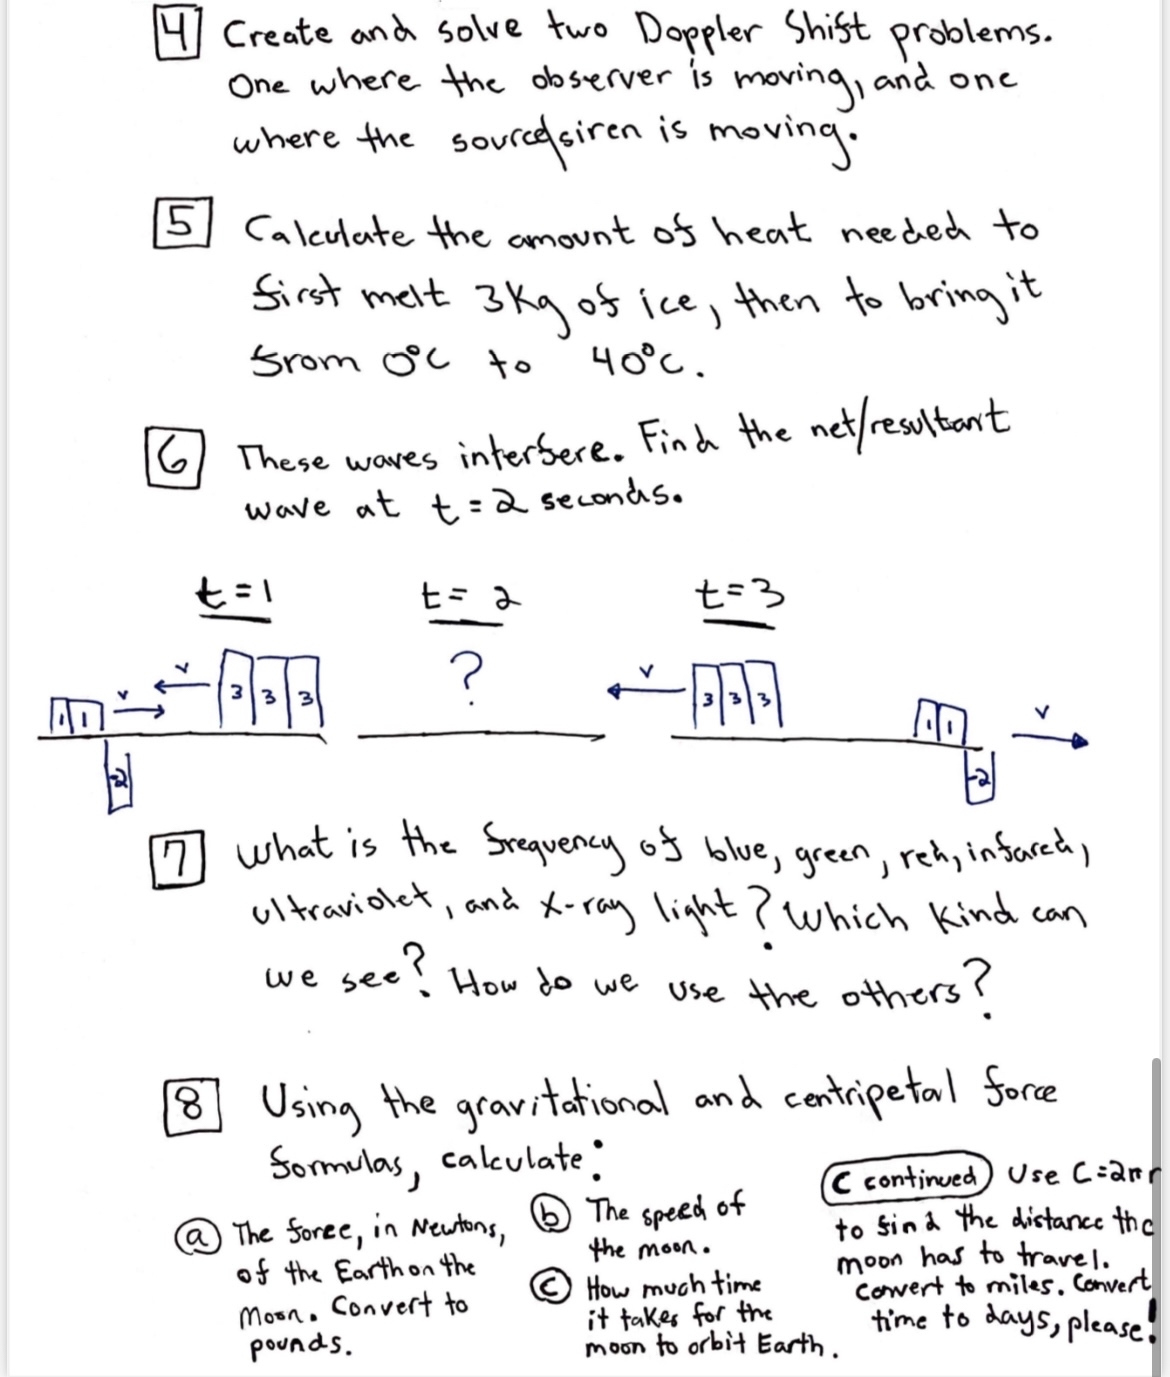 4 Create and solve two Doppler Shift problems.
One where the observer is moving, and one
where the source/siren is moving.
5 Calculate the amount of heat needed to
first melt 3kg of ice, then to bring it
from 0°C to 40°C.
6 These waves interfere. Find the net/resultant
wave at t=2 seconds.
t=1 t=2 t=3
v v 3 3 3 ? v 3 3 3
1 1 1 1 v
-2 -2
7 What is the frequency of blue, green, red, infared,
ultraviolet, and x-ray light? Which kind can
we see? How do we use the others?
8 Using the gravitational and centripetal force
formulas, calculate:
a The force, in Newtons,
of the Earth on the
Moon. Convert to
pounds.
b The speed of
the moon.
c How much time
it takes for the
moon to orbit Earth.
C continued Use C=2πr
to find the distance the
moon has to travel.
Convert to miles. Convert
time to days, please!